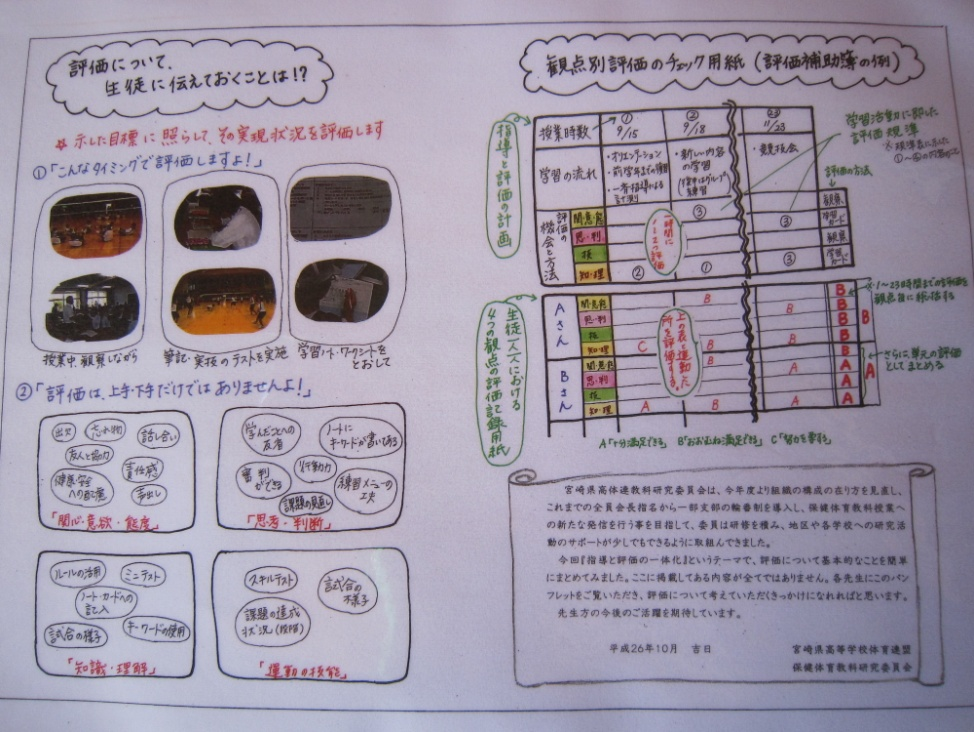 評価について、
生徒に伝えておくことは!?
☆示した目標に照らして、その実現状況を評価します
①「こんなタイミングで評価しますよ!」
授業中、観察しながら
筆記・実技のテストを実施
学習ノート・ワークシートを
とおして
②「評価は、上手・下手だけではありませんよ!」
出欠
忘れ物
話し合い
友人と協力
責任感
健康・安全
への配慮
声出し
「関心・意欲・態度」
学んだことへの
反省
ノートに
キーワードが書いてある
審判
ができる
行動力
練習メニューの
工夫
課題の見直し
「思考・判断」
ルールの活用
ミニテスト
ノート・カードへの
記入
試合の様子
キーワードの使用
「知識・理解」
スキルテスト
試合の
様子
課題の達成
状況(段階)
「運動の技能」
観点別評価のチェック用紙(評価補助簿の例)
指導と評価の計画
授業時数
① 9/15
② 9/18
㉓ 11/23
学習の流れ
・オリエンテーション
・前学年までの復習
・一斉指導による
計測
・新しい内容
の学習
・競技会
学習活動に即した
評価規準
評価の方法
評価の
機会と方法
関・意・態
思・判
技
知・理
③
③
③
② ①
一時間に
1~2つ評価
観察
学習カード
観察
学習カード
生徒一人一人における
4つの観点の評価記録用紙
Aさん
関・意・態 B B
思・判 B B
技 B B
知・理 C B B
B
Bさん
関・意・態 B B
思・判 A
技 A A
知・理 A B A
A
上の表と連動した
所を評価する。
※1~23時間までの評価を
観点毎に総括する
さらに、単元の評価
としてまとめる
A「十分満足できる」 B「おおむね満足できる」 C「努力を要する」
宮崎県高体連教科研究委員会は、今年度より組織の構成の在り方を見直し、
これまでの全員会長指名から一部支部の輪番制を導入し、保健体育教科授業へ
の新たな発信を行う事を目指して、委員は研修を積み、地区や各学校への研究活
動のサポートが少しでもできるように取組んできました。
今回『指導と評価の一体化』というテーマで、評価について基本的なことを簡単
にまとめてみました。ここに掲載してある内容が全てではありません。各先生にこのパン
フレットをご覧いただき、評価について考えていただくきっかけになれればと思います。
先生方の今後のご活躍を期待しています。
平成26年10月 吉日
宮崎県高等学校体育連盟
保健体育教科研究委員会